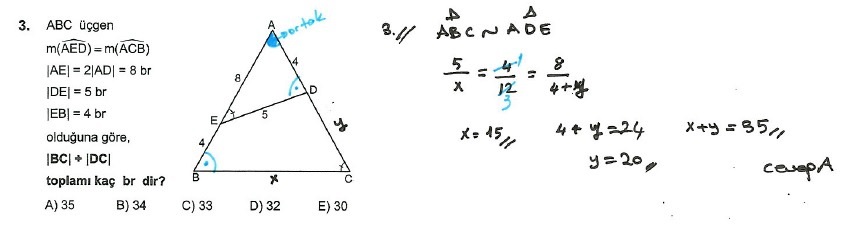 3. ABC üçgen
m(AED) = m(ACB)
|AE| = 2|AD| = 8 br
|DE| = 5 br
|EB| = 4 br
olduğuna göre,
|BC| + |DC|
toplamı kaç br dir?
A) 35 B) 34 C) 33 D) 32 E) 30
A
ortak
8
4
D
E
5
y
4
B
x
C
3.// ABC ~ ADE
5/x = 4/12 = 8/4+y
1
3
x = 15// 4 + y = 24 x+y = 35//
y = 20//
cevap A